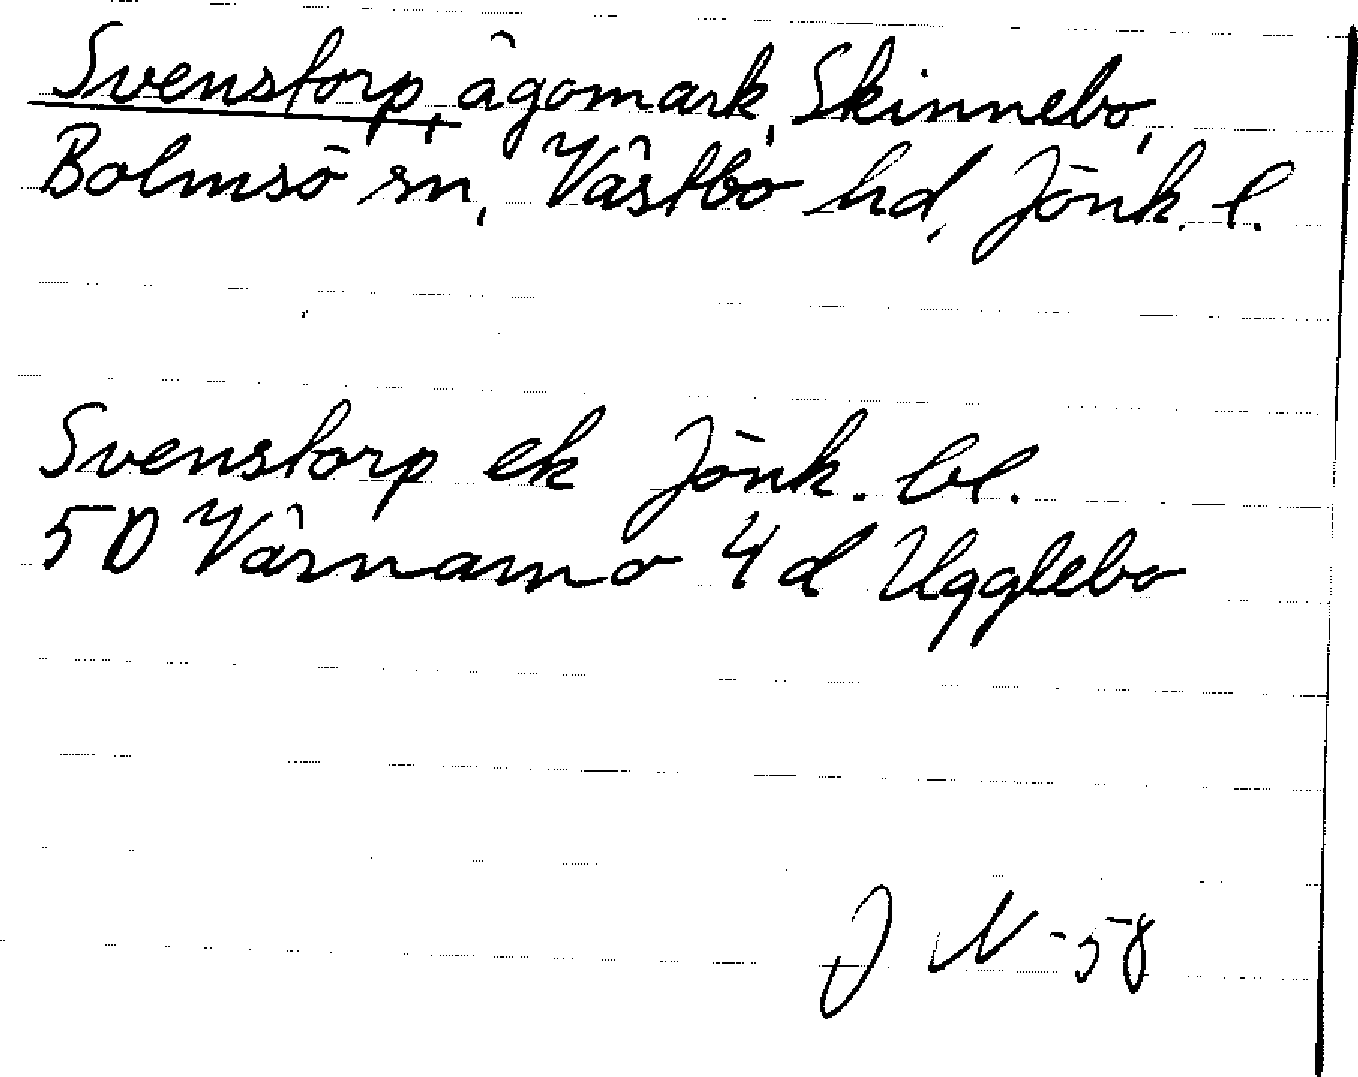 Svenstorp, ägomark, Skinnebo,
Bolmsö sn, Västbo hd, Jönk. l.
Svenstorp ek Jönk. bl.
5D Värnamo 4 d Ugglebo
J N -58